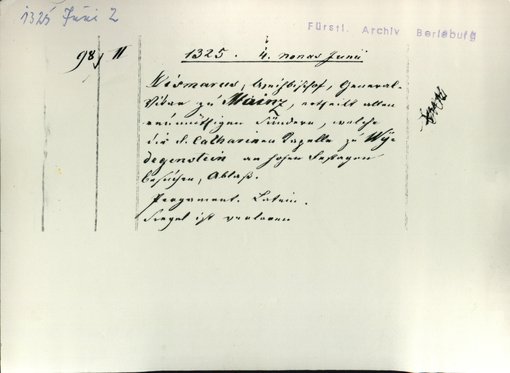 1325 Juni 2
Fürstl. Archiv Berleburg
98 II
1325. 4. nonas Junii
Wismarus, Weihbischof, General-
Vikar zu Mainz, ertheilt allen
reumüthigen Sündern, welche
die S. Catharinen Capelle zu Wije
degenstein an hohen Festagen
besuchen, Ablaß.
Pergament. Latein.
Siegel ist verloren